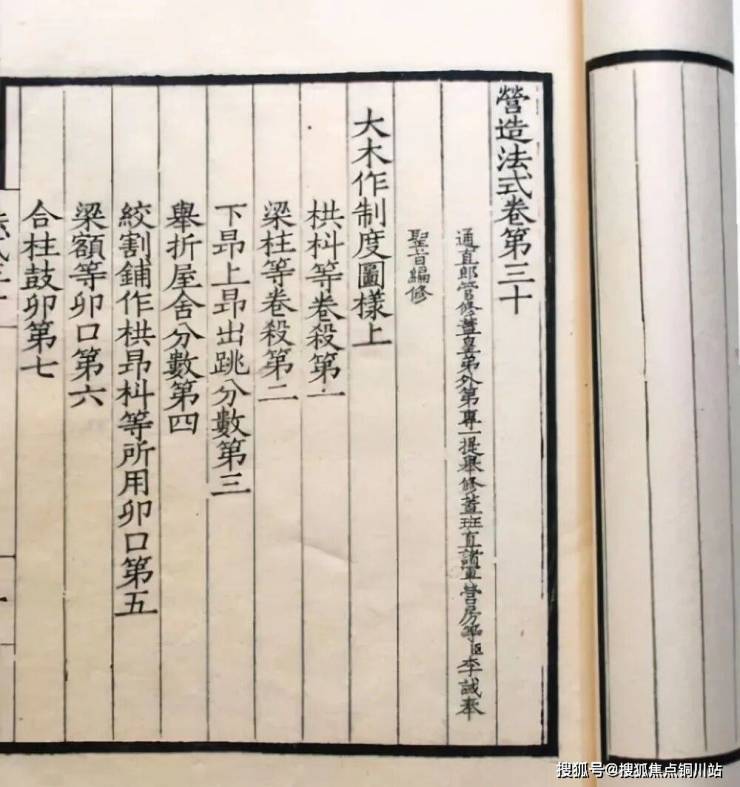 營造法式卷第三十
通直郎管修蓋皇弟外第專一提舉修蓋班直諸軍營房等臣李誡奉
聖旨編修
大木作制度圖樣上
栱枓等卷殺第一
梁柱等卷殺第二
下昂上昂出跳分數第三
舉折屋舍分數第四
絞割鋪作栱昂枓等所用卯口第五
梁額等卯口第六
合柱鼓卯第七
搜狐号@搜狐焦点铜川站